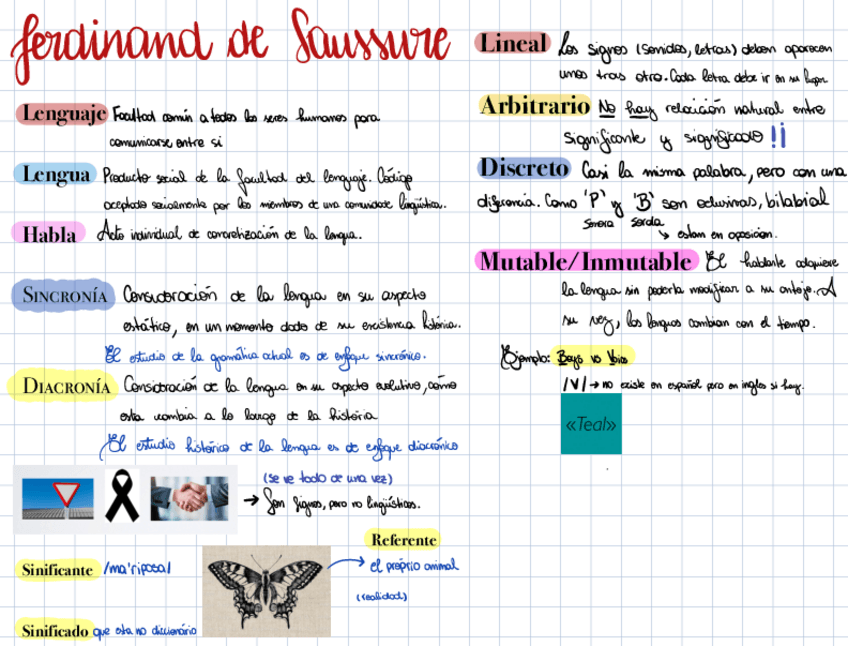 Ferdinand de Saussure
Lenguaje Facultad común a todos los seres humanos para
comunicarse entre si
Lengua Producto social de la facultad del lenguaje. Código
aceptado socialmente por los miembros de una comunidade lingüística.
Habla Acto individual de concretización de la lengua.
SINCRONÍA Consideración de la lengua en su aspecto
estático, en un momento dado de su existencia histórica.
El estudio de la gramática actual es de enfoque sincrónico.
DIACRONÍA Consideración de la lengua en su aspecto evolutivo, como
esta cambia a lo largo de la história
El estudio histórico de la lengua es de enfoque diacrónico
(se ve todo de una vez)
→ Son signos, pero no lingüísticos.
Sinificante /ma'riposa/
Referente
el próprio animal
(realidad)
Sinificado que esta no diccionário
Lineal Los signos (sonidos, letras) deben aparecen
unos tras otro. Cada letra debe ir en su lugar.
Arbitrario No hay relación natural entre
significante y significado !¡
Discreto Casi la misma palabra, pero con una
diferencia. Como 'P' y 'B' son oclusivas, bilabial
Sonora Sorda
↳ estan en oposición.
Mutable/Inmutable El hablante adquiere
la lengua sin poderla modificar a su antojo. A
su vez, las lenguas cambian con el tiempo.
Ejemplo: Beys vs Vois
/V/ → no existe en español pero en ingles si hay.
«Teal»